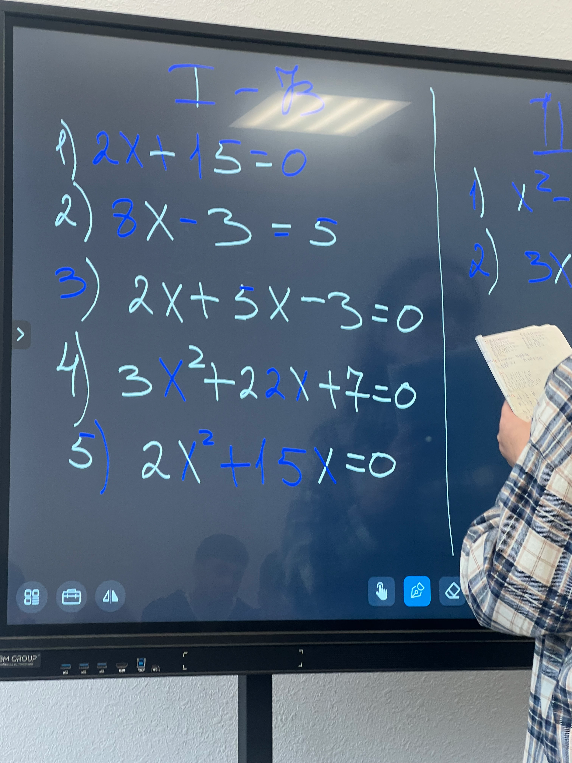 1) 2x+15=0
2) 8x-3=5
3) 2x+5x-3=0
4) 3x²+22x+7=0
5) 2x²+15x=0
II
1) x²-
2) 3x
GROUP